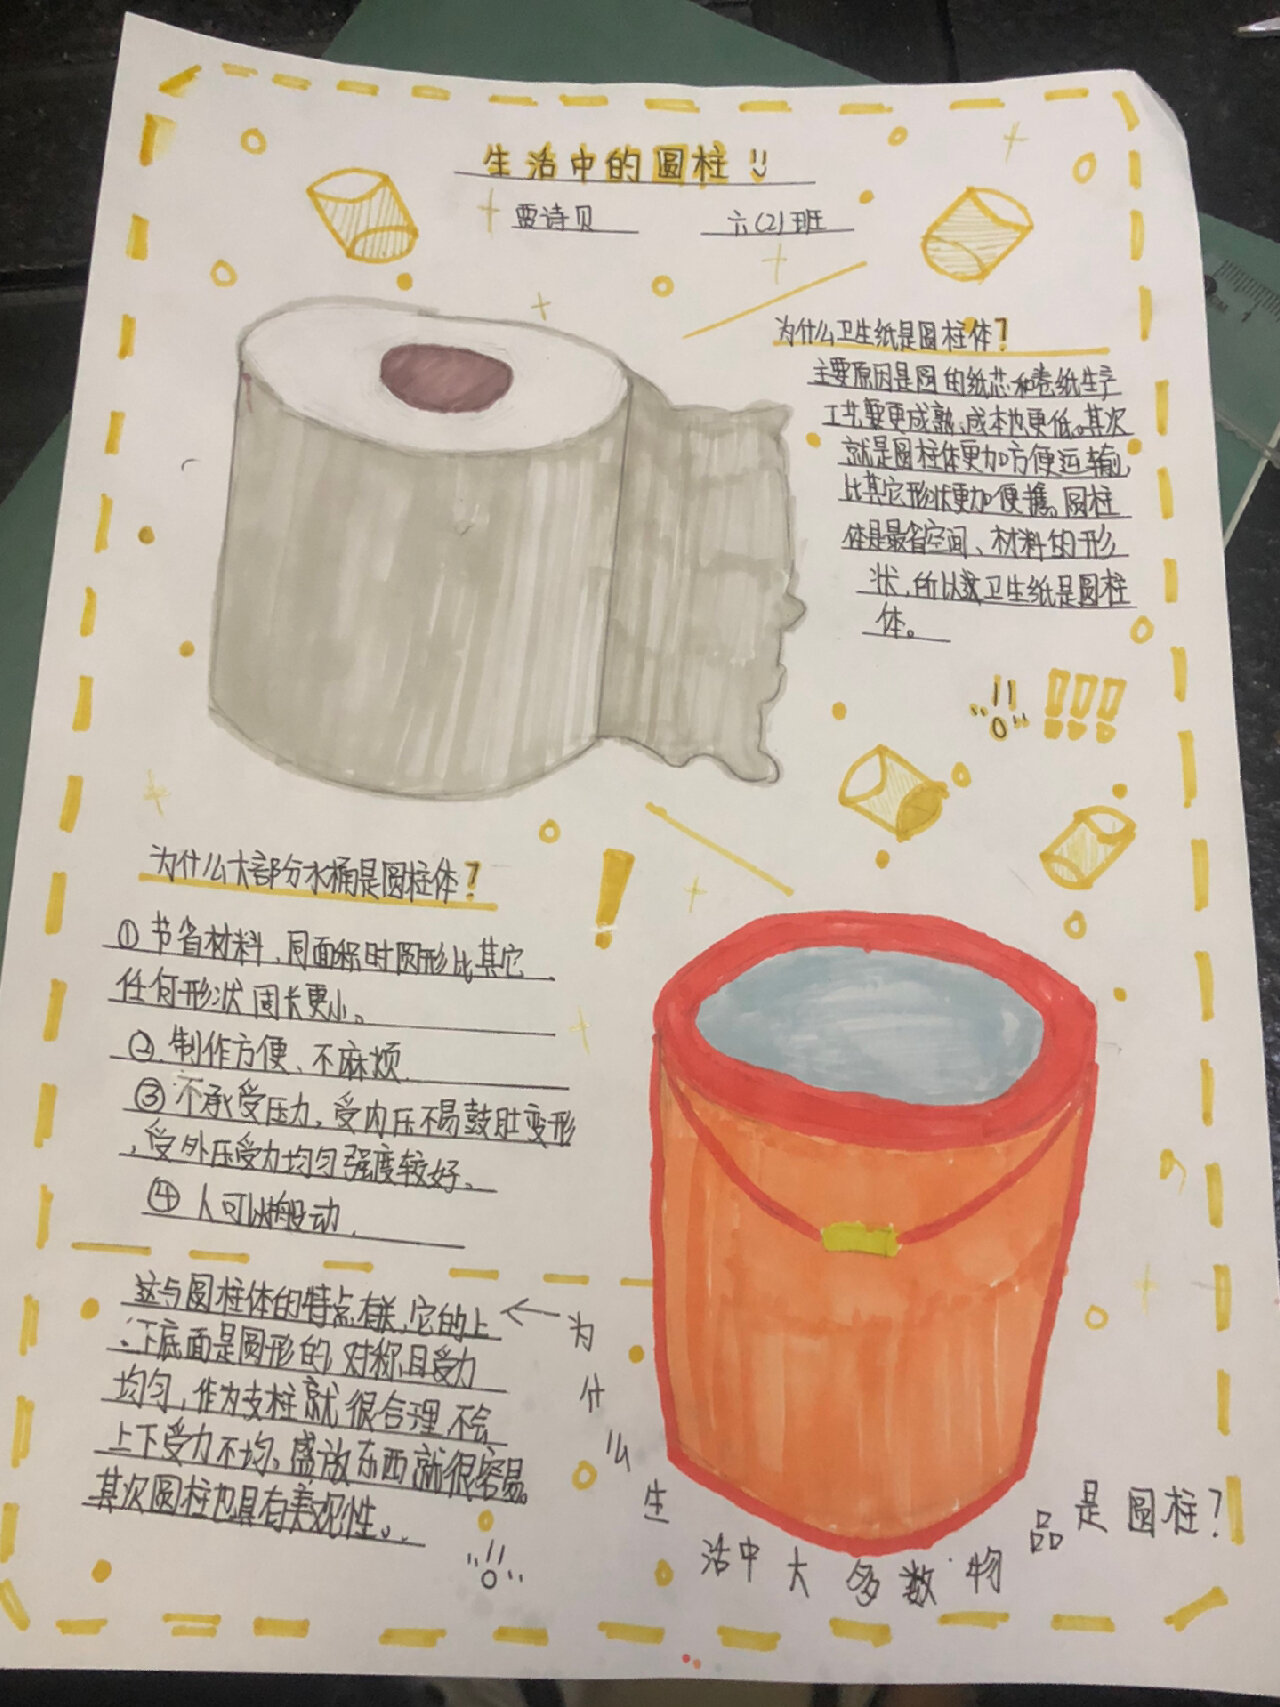 生活中的圆柱!!
雷诗贝 六(2)班
为什么卫生纸是圆柱体?
主要原因是圆的纸芯和卷纸生产
工艺要更成熟、成本也更低。其次
就是圆柱体更加方便运输,
比其它形状更加便携。圆柱
体是最省空间、材料的形
状,所以卫生纸是圆柱
体。
!!!
为什么大部分水桶是圆柱体?
①节省材料、同面积时圆形比其它
任何形状周长更小。
②.制作方便、不麻烦.
③不承受压力,受内压不易鼓肚变形
,受外压受力均匀强度较好、
④人可以搬动.
这与圆柱体的特点有关,它的上
下底面是圆形的,对称,且受力
均匀,作为支柱就很合理,不会
上下受力不均、盛放东西就很容易。
其次圆柱也具有美观性。
为什么生活中大多数物品是圆柱?